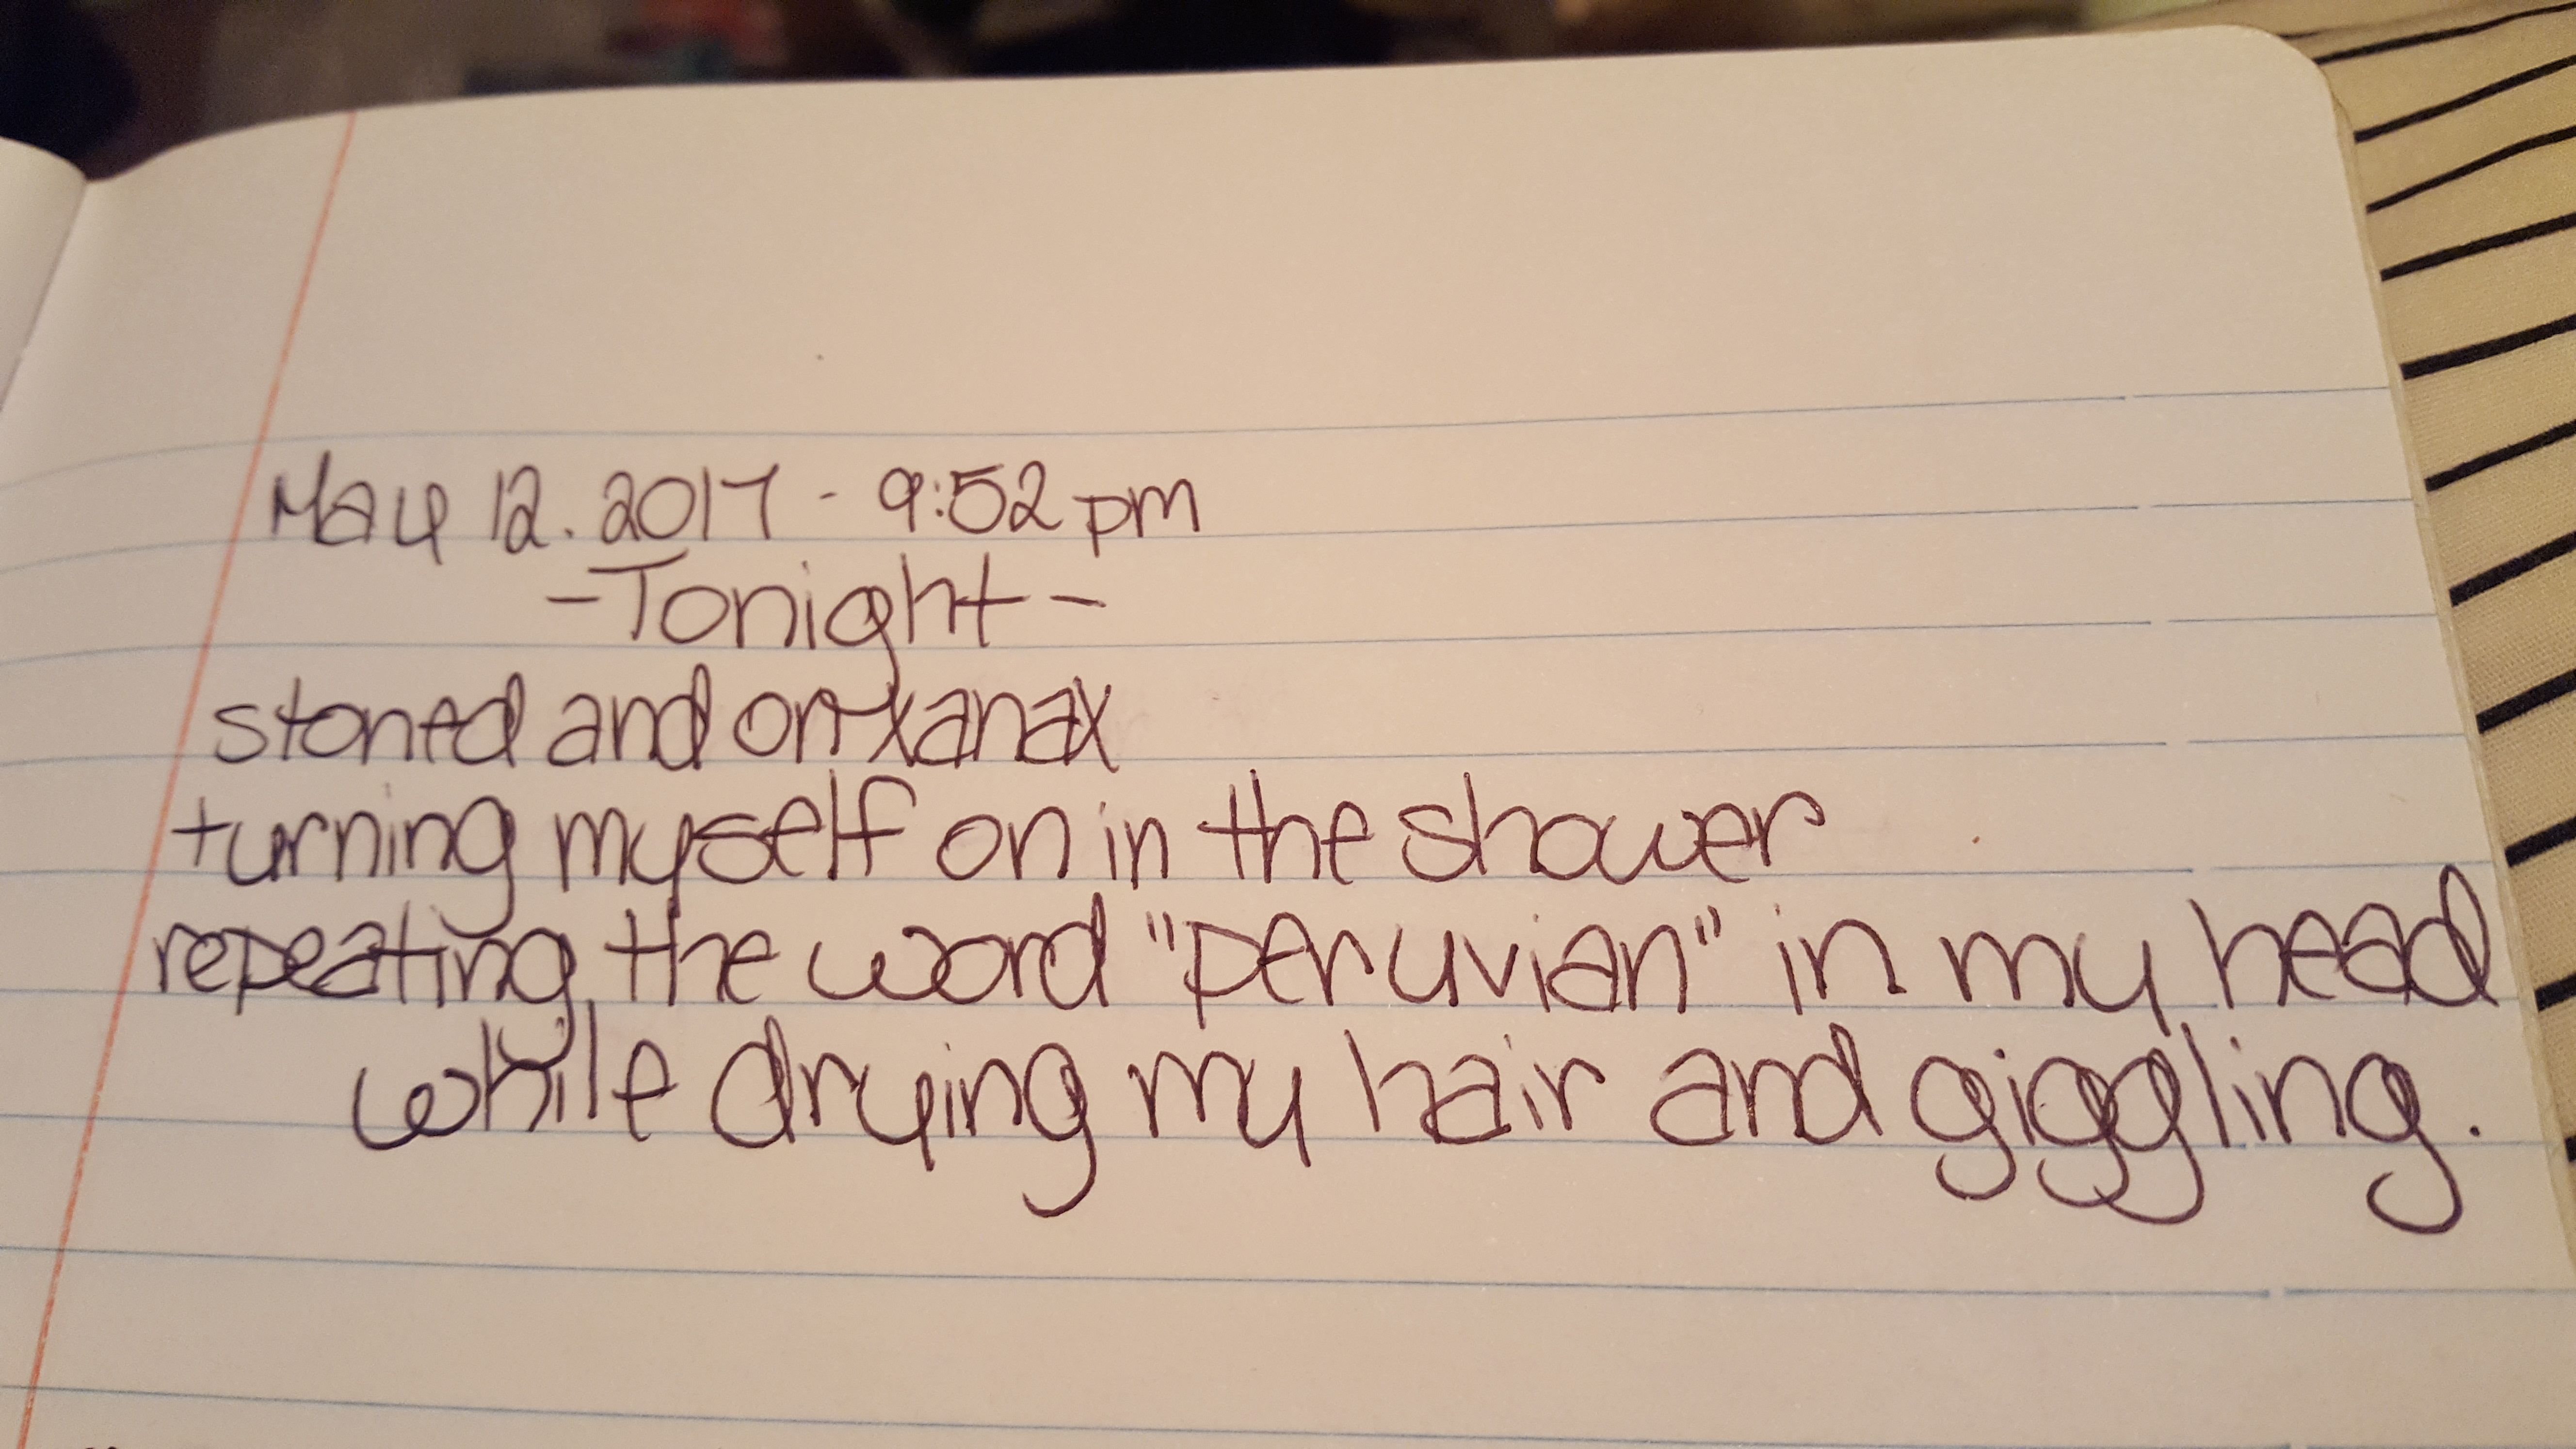 May 12. 2017 - 9:52 pm
-Tonight-
stoned and on xanax
turning myself on in the shower
repeating the word "peruvian" in my head
while drying my hair and giggling.